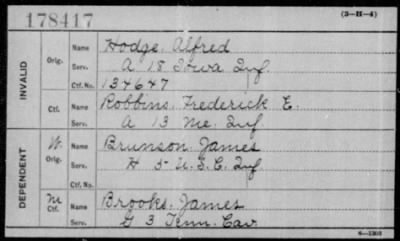 178417
(3-H-4)
INVALID
Orig. Name Hodge, Alfred
Serv. A 18 Iowa Inf.
Ctf. No. 134647
Ctf. Name Robbins, Frederick E.
Serv. A 13 Me. Inf.
DEPENDENT
W. Orig. Name Brunson, James
Serv. H 5 U.S.C. Inf
Ctf. No.
M Ctf. Name Brooks, James
Serv. G 3 Tenn. Cav.